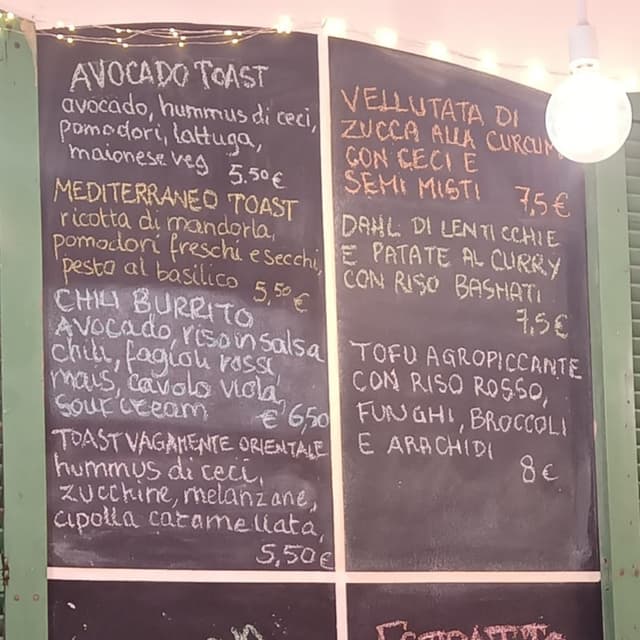 AVOCADO TOAST
avocado, hummus di ceci,
pomodori, lattuga,
maionese veg 5.50€
MEDITERRANEO TOAST
ricotta di mandorla,
pomodori freschi e secchi,
pesto al basilico 5,50€
CHILI BURRITO
Avocado, riso in salsa
chili, fagioli rossi
mais, cavolo viola,
sour cream € 6,50
TOAST VAGAMENTE ORIENTALE
hummus di ceci,
zucchine, melanzane,
cipolla caramellata,
5,50€
VELLUTATA DI
ZUCCA ALLA
CON CECI E
SEMI MISTI 7,5€
DAHL DI LENTICCHIE
E PATATE AL CURRY
CON RISO BASMATI
7,5€
TOFU AGROPICCANTE
CON RISO ROSSO,
FUNGHI, BROCCOLI
E ARACHIDI
8€